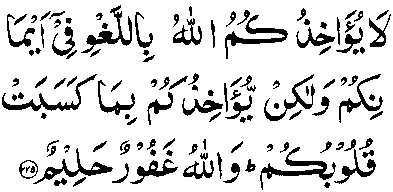 لَا يُؤَاخِذُ كُمُ اللهُ بِاللَّغْوِ فِيْٓ اَيْمَا
نِكُمْ وَلٰكِنْ يُّؤَاخِذُ كُمْ بِمَا كَسَبَتْ
قُلُوْبُكُمْ ؕ وَاللهُ غَفُوْرٌ حَلِيْمٌ ﴿۲۲۵﴾